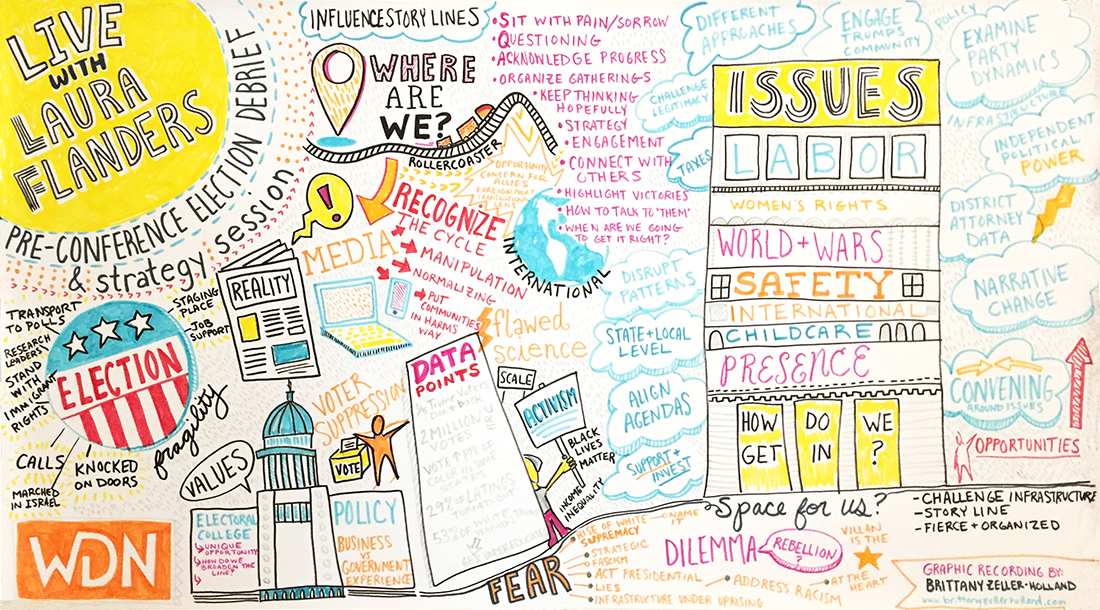 LIVE
WITH
LAURA
FLANDERS
PRE-CONFERENCE ELECTION DEBRIEF
& strategy session
INFLUENCE STORY LINES
WHERE
ARE
WE?
ROLLERCOASTER
OPPORTUNITY
CONCERN FOR
ALLIES
LENS
• SIT WITH PAIN/SORROW
• QUESTIONING
• ACKNOWLEDGE PROGRESS
• ORGANIZE GATHERINGS
• KEEP THINKING
HOPEFULLY
• STRATEGY
• ENGAGEMENT
• CONNECT WITH
OTHERS
• HIGHLIGHT VICTORIES
• HOW TO TALK TO "THEM"
• WHEN ARE WE GOING
TO GET IT RIGHT?
INTERNATIONAL
!
MEDIA
RECOGNIZE
THE CYCLE
MANIPULATION
NORMALIZING
PUT
COMMUNITIES
IN HARMS
WAY
REALITY
flawed
science
TRANSPORT
TO POLLS
RESEARCH
LEADERS
STAND
WITH
IMMIGRANT
RIGHTS
STAGING
PLACE
JOB
SUPPORT
ELECTION
fragility
CALLS
KNOCKED
ON DOORS
MARCHED
IN ISRAEL
WDN
VALUES
ELECTORAL
COLLEGE
UNIQUE
OPPORTUNITY
HOW DO WE
BROADEN THE
LINE?
VOTER
SUPPRESSION
VOTE
POLICY
BUSINESS
VS
GOVERNMENT
EXPERIENCE
DATA
POINTS
2 MILLION
SCALE
ACTIVISM
BLACK
LIVES
MATTER
INCOME
INEQUALITY
FEAR
• RISE OF WHITE
SUPREMACY
NAME
IT
• STRATEGIC
• FASCISM
• ACT PRESIDENTIAL
• LIES
• INFRASTRUCTURE UNDER UPRISING
• ADDRESS RACISM
DILEMMA
REBELLION?
VILLAN
IS THE
• AT THE
HEART
DIFFERENT
APPROACHES
ENGAGE
TRUMPS
COMMUNITY
POLICY
EXAMINE
PARTY
DYNAMICS
CHALLENGE
LEGITIMACY
TAXES
INFRASTRUCTURE
INDEPENDENT
POLITICAL
POWER
DISTRICT
ATTORNEY
DATA
NARRATIVE
CHANGE
CONVENING
AROUND ISSUES
DISRUPT
PATTERNS
STATE + LOCAL
LEVEL
ALIGN
AGENDAS
SUPPORT +
INVEST
ISSUES
LABOR
WOMEN'S RIGHTS
WORLD + WARS
SAFETY
INTERNATIONAL
CHILDCARE
PRESENCE
HOW
GET
DO
IN
WE
?
OPPORTUNITIES
Space for us?
- CHALLENGE INFRASTRUCTURE
- STORY LINE
- FIERCE + ORGANIZED
GRAPHIC RECORDING BY:
BRITTANY ZELLER-HOLLAND
www.brittanyzellerholland.com